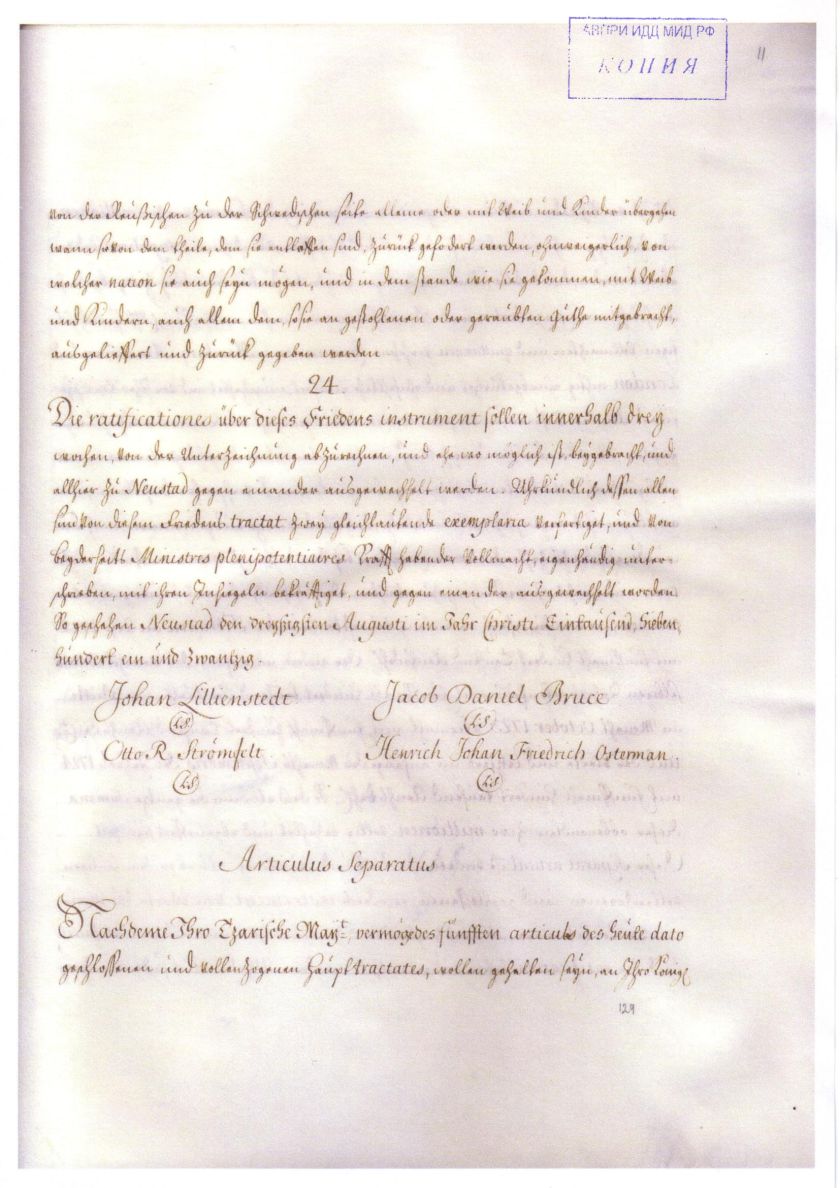 АВПРИ ИДД МИД РФ
КОПИЯ
11
von der Reußischen zu der Schwedischen seite alleine oder mit Weib und Kinder übergehen
wann sie von dem theile, dem sie entlaffen sind, zurück gefodert werden, ohnweigerlich, von
welcher nation sie auch seyn mögen, und in dem stande wie sie gekommen, mit Weib
und Kindern, auch allem dem, so sie an gestohlenen oder geraubten Guthe mitgebracht,
ausgelieffert und zurück gegeben werden
24.
Die ratificationes über dieses Friedens instrument sollen innerhalb drey
wochen, von der Unterzeichnung abzurechnen, und ehe wo möglich ist, beygebracht, und
allhier zu Neustad gegen einander ausgewechselt werden. Uhrkündlich dessen allen
sind von diesem Friedens tractat zwey gleichlautende exemplaria verfertiget, und von
beyderseits Ministres plenipotentiaires Krafft habender Vollmacht, eigenhändig unter-
schrieben, mit ihren Insiegeln bekräfftiget, und gegen einander ausgewechselt worden
So geschehen Neustad den dreyßigsten Augusti im Jahr Christi Eintausend, Sieben,
hundert ein und zwantzig.
Johan Lillienstedt Jacob Daniel Bruce
LS LS
Otto R. Strömfelt. Henrich Johan Friedrich Osterman.
LS LS
Articulus Separatus
Nachdeme Ihro Tzarische Mayt, vermöge des fünfften articuls des heute dato
geschlossenen und vollenzogenen Haupt tractates, wollen gehalten seyn, an Ihro Königl
129